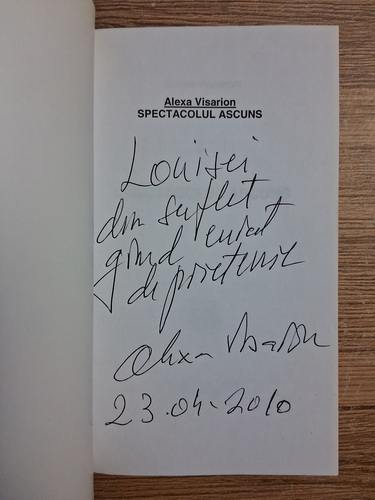 Alexa Visarion
SPECTACOLUL ASCUNS
Louisei
din suflet
gând curat
de prietenie
Alexa Visarion
23.04.2010